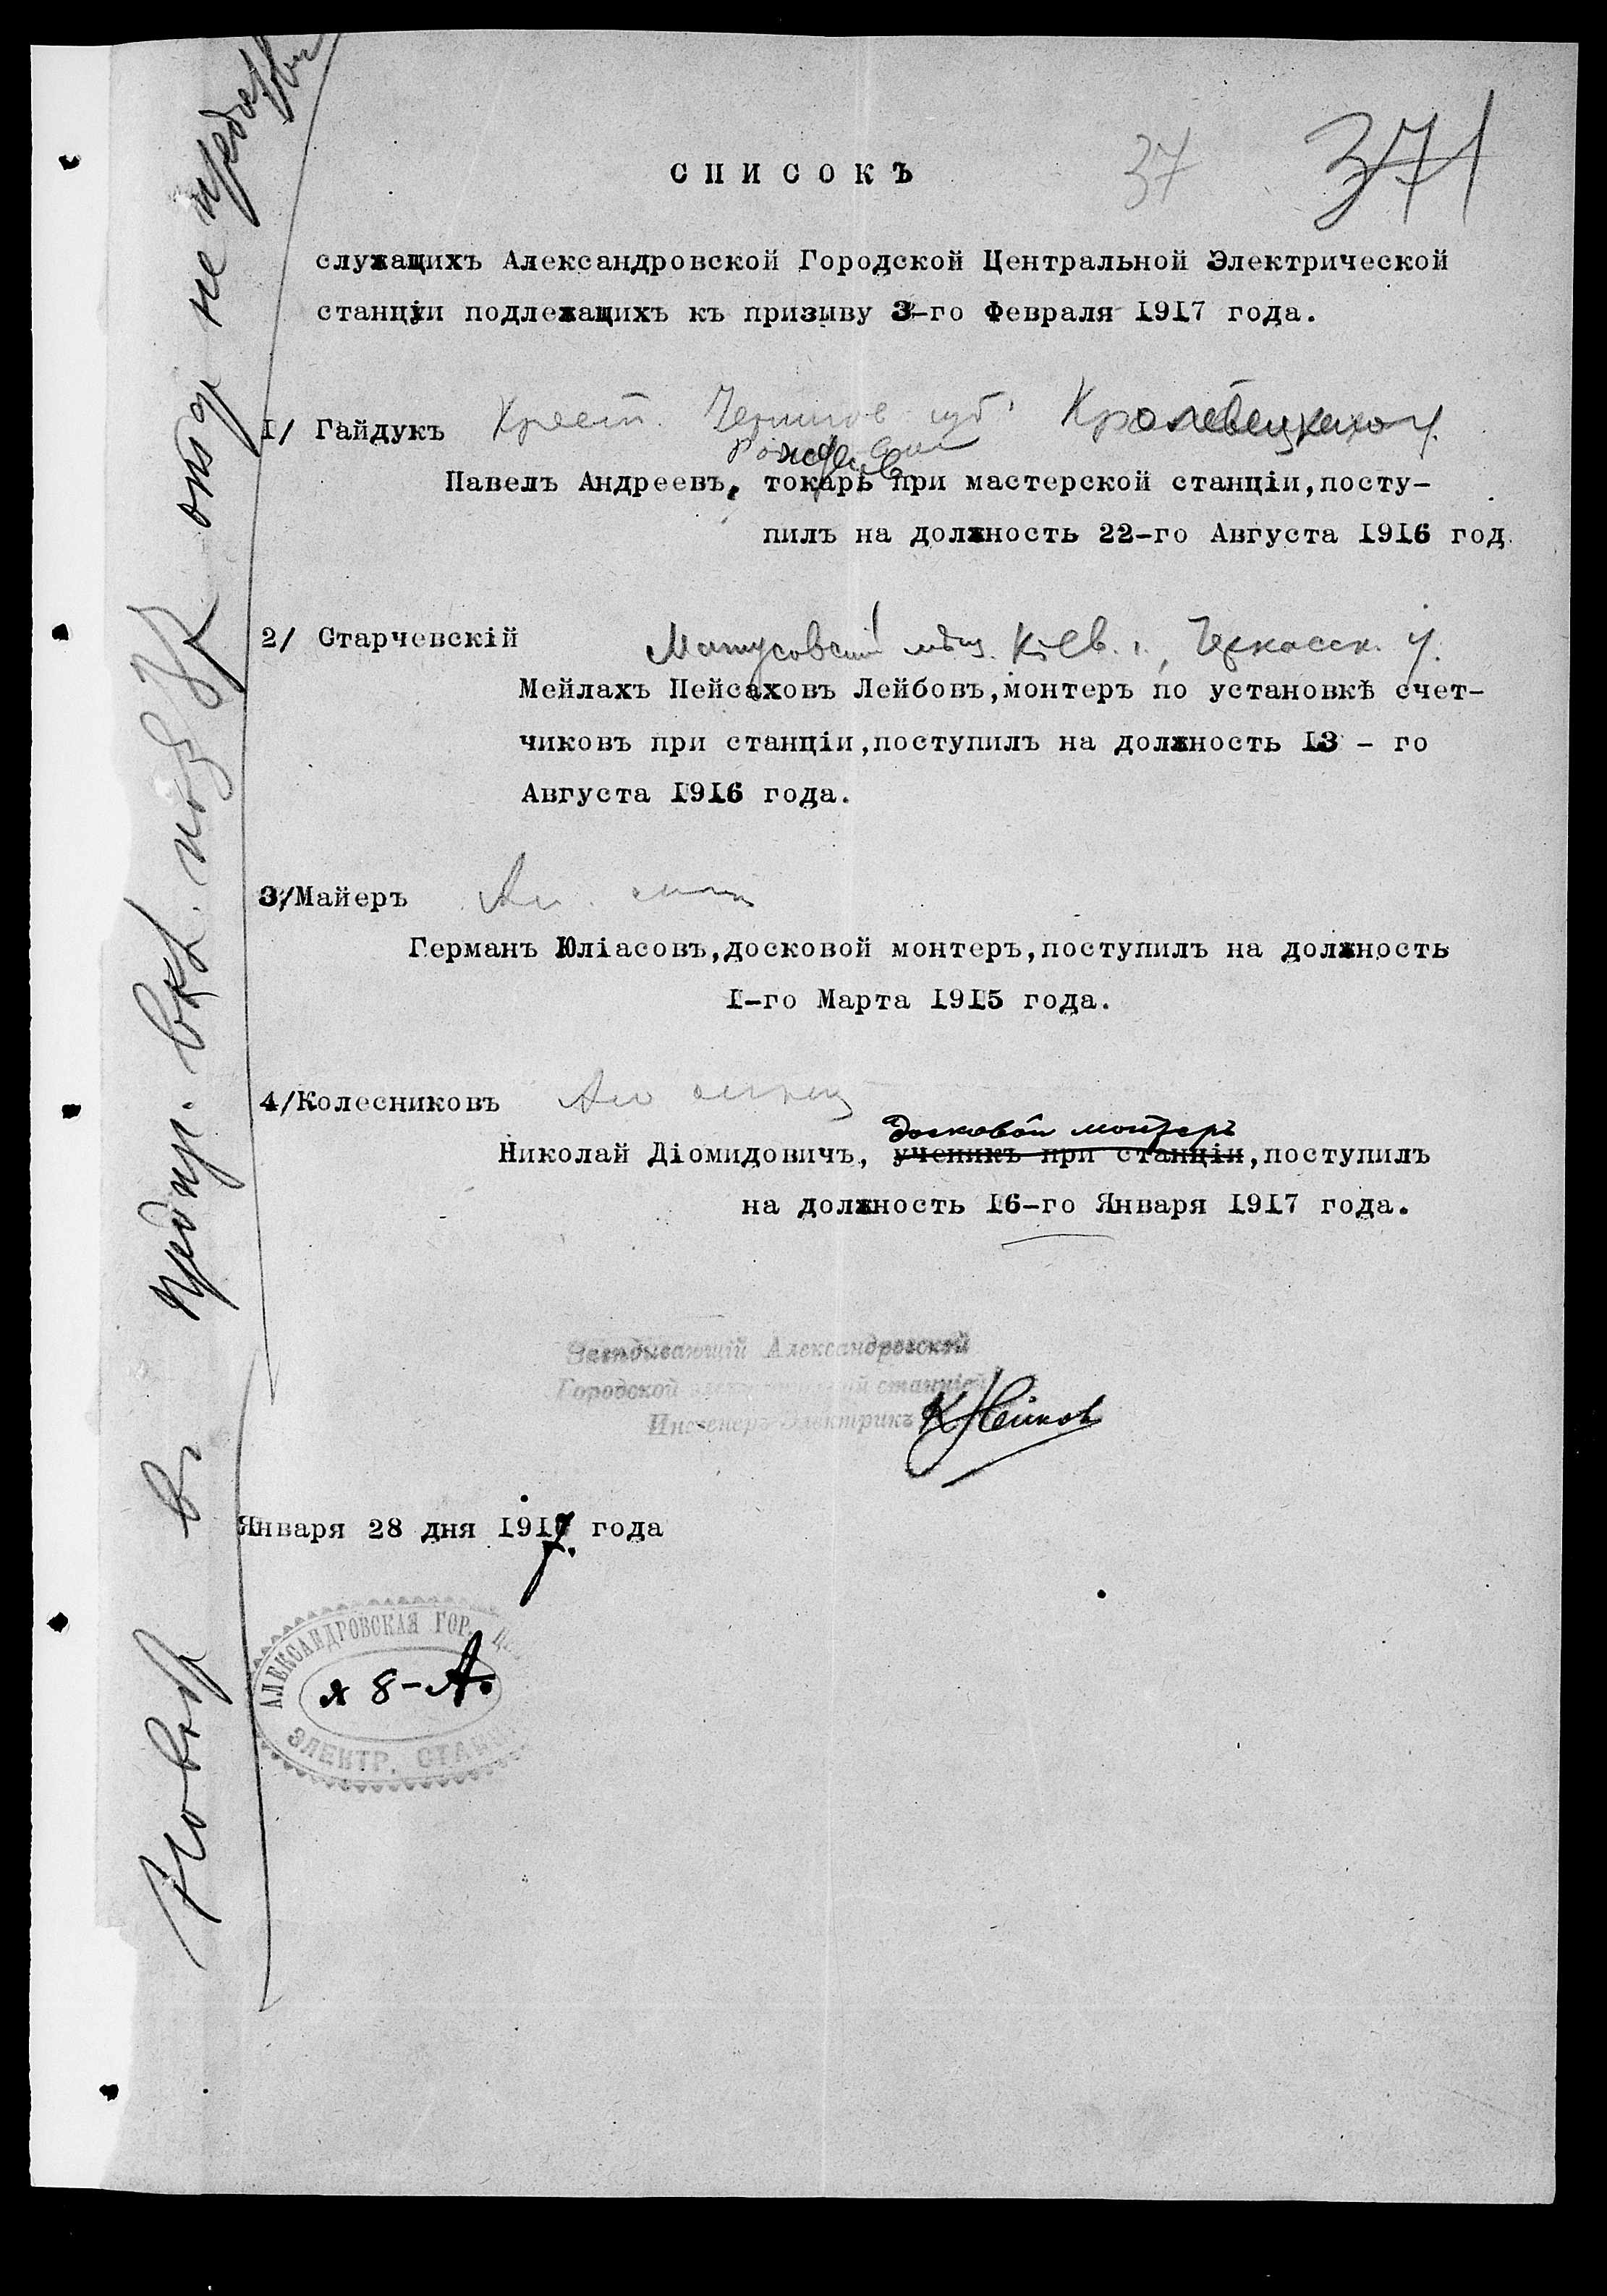 СПИСОКЪ
37 371
служащихъ Александровской Городской Центральной Электрической
станціи подлежащихъ къ призыву 3-го Февраля 1917 года.
I/ Гайдукъ Крест. Чернигов губ. Кролевецкаго у.
Павелъ Андреевъ, токарь при мастерской станціи,посту-
пилъ на должность 22-го Августа 1916 год
2/ Старчевскій
Матусовскій мѣщ. Кіев. г., Черкасск. у.
Мейлахъ Пейсаховъ Лейбовъ,монтеръ по установкѣ счет-
чиковъ при станціи,поступилъ на должность I3 - го
Августа I9I6 года.
3/Майеръ
Германъ Юліасовъ,досковой монтеръ,поступилъ на должность
I-го Марта I9I5 года.
4/Колесниковъ
досковой монтеръ
Николай Діомидовичъ, ученикъ при станціи,поступилъ
на должность I6-го Января I9I7 года.
Завѣдывающій Александровской
Городской электрической станціей
Инженеръ-Электрикъ
Января 28 дня I9I7 года
АЛЕКСАНДРОВСКАЯ ГОР.
№ 8-А.
ЭЛЕКТР. СТАНЦ